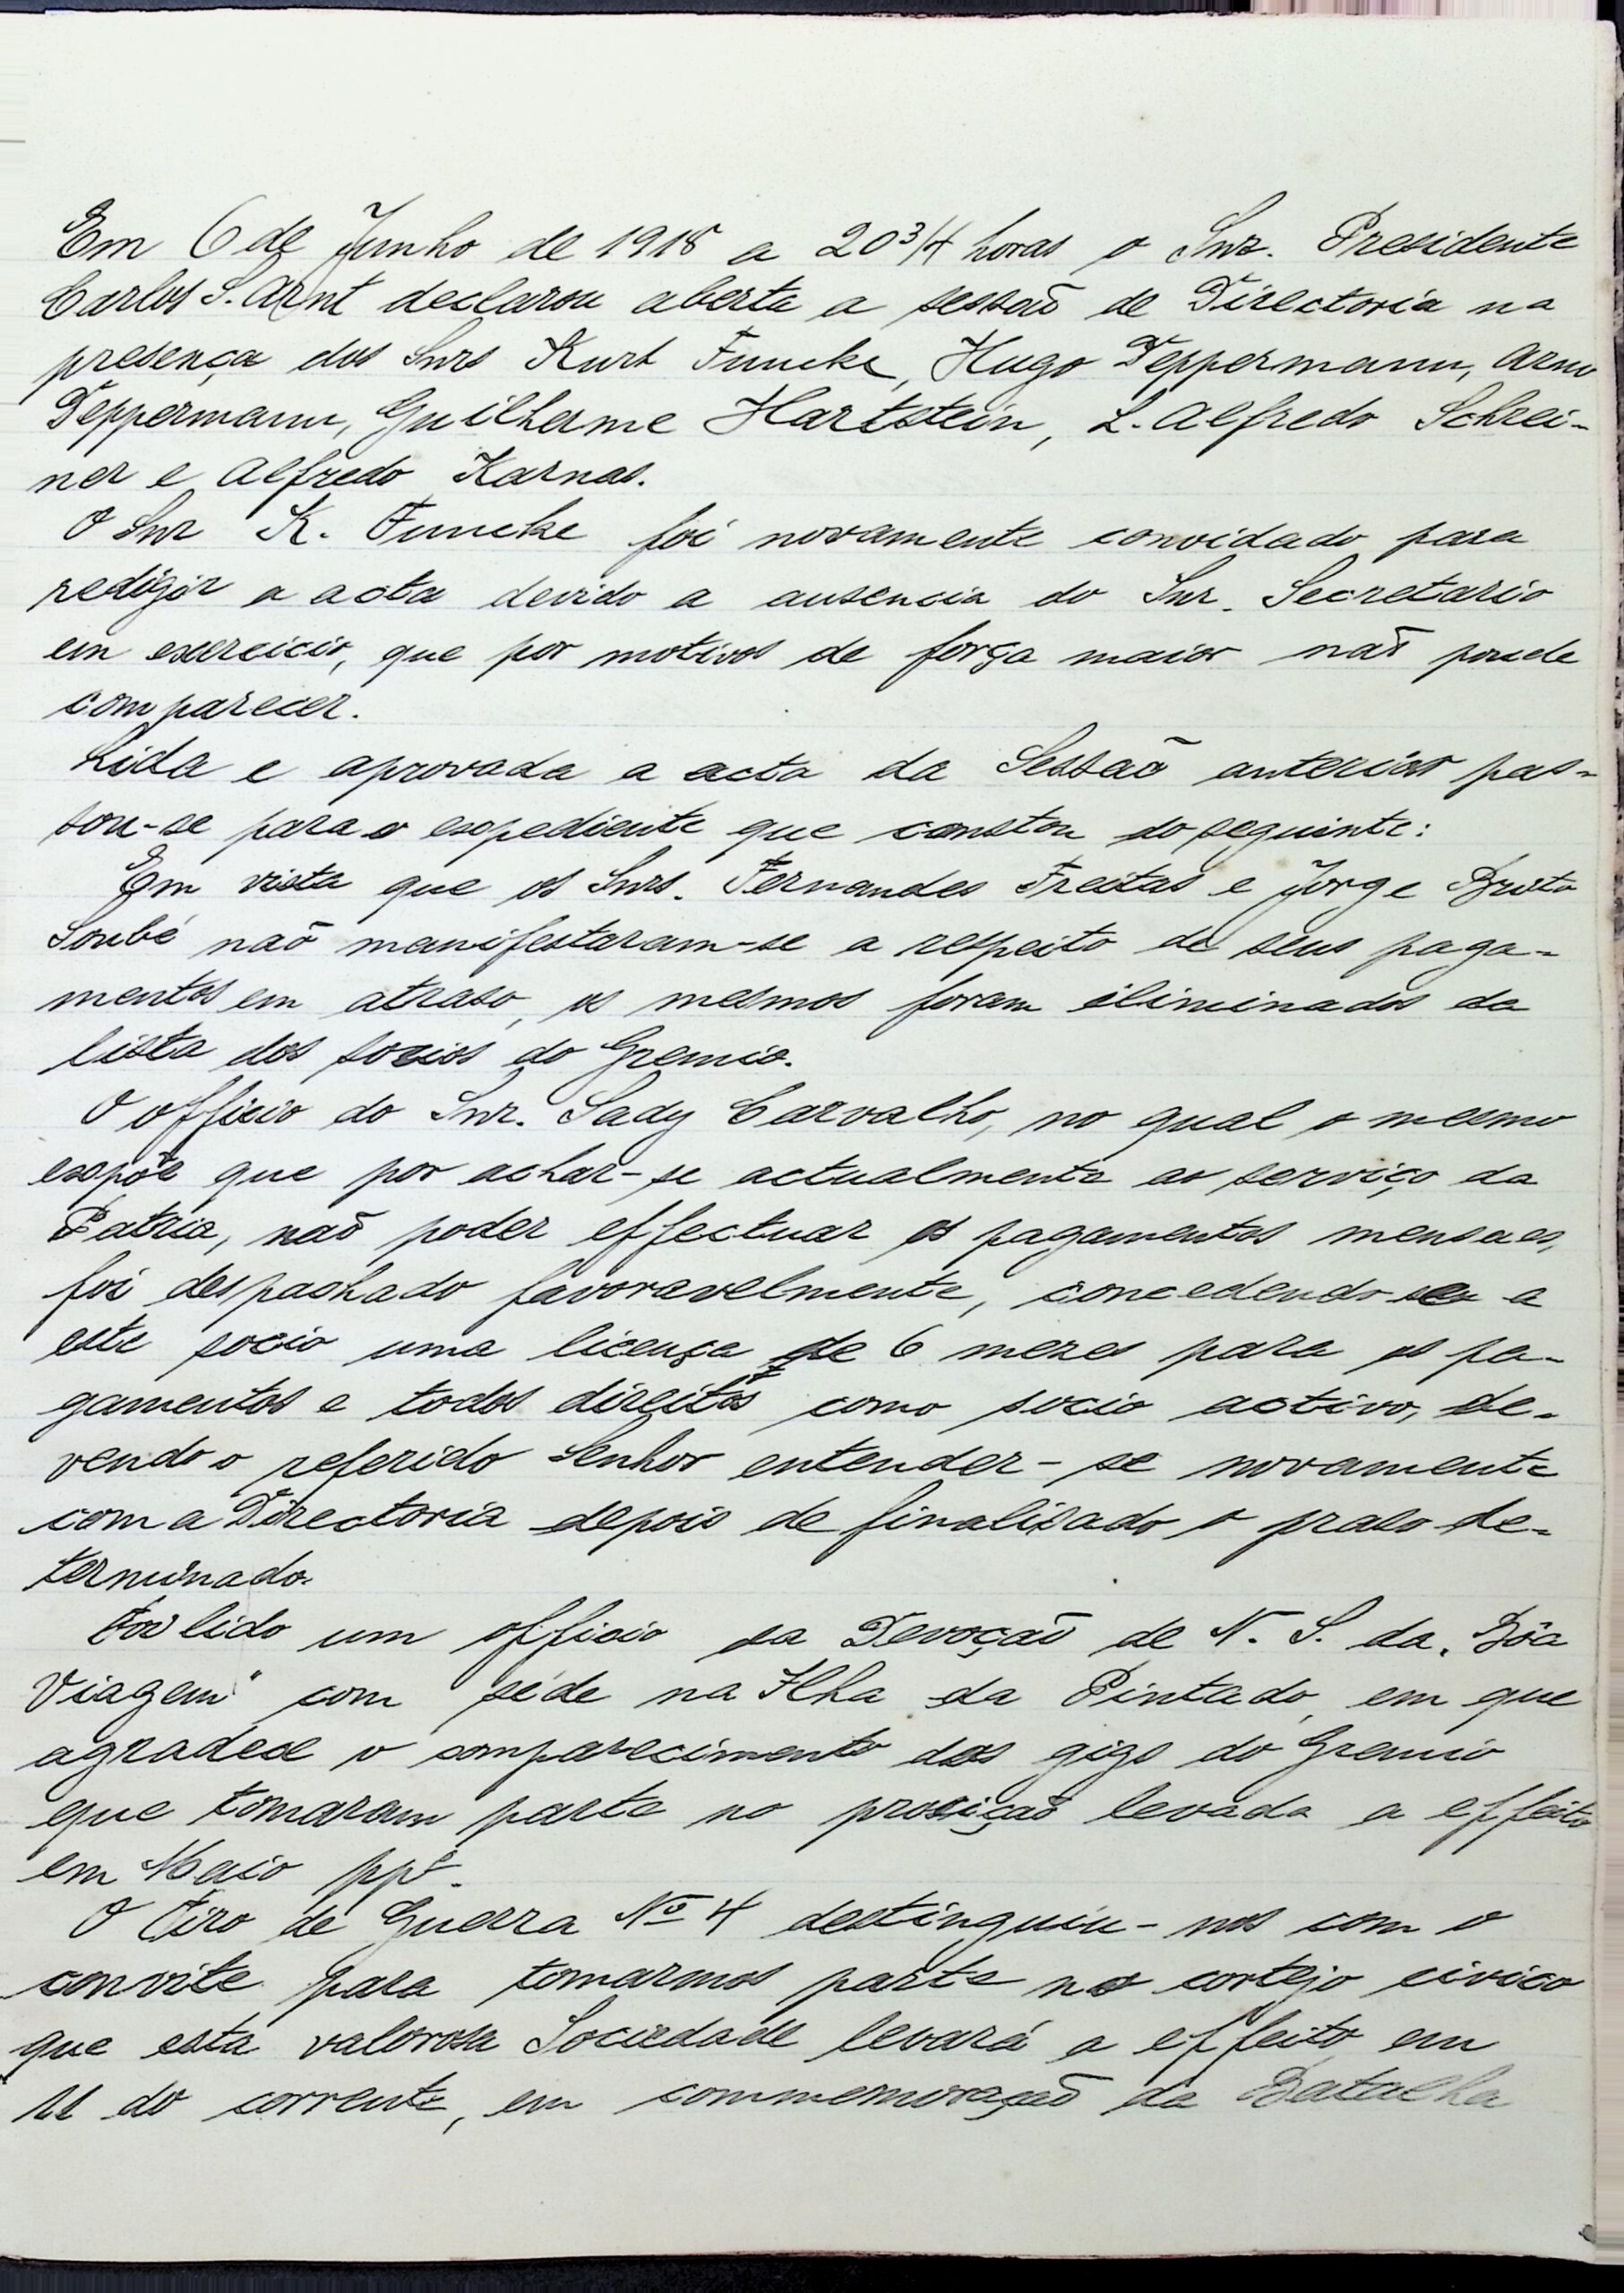 Em 6 de Junho de 1918 a 20 3/4 horas o Snr. Presidente
Carlos S. Arnt declarou aberta a sessaõ de Directoria na
presença dos Snrs Kurt Funcke, Hugo Deppermann, Arno
Deppermann, Guilherme Hartstein, L. Alfredo Schrei-
ner e Alfredo Karnas.
O Snr K. Funcke foi novamente convidado para
redigir a acta devido a ausencia do Snr. Secretario
em exercicio, que por motivos de força maior naõ poude
comparecer.
Lida e aprovada a acta da Sessaõ anterior pas-
sou-se para o expediente que constou do seguinte:
Em vista que os Snrs. Fernandes Freitas e Jorge Brito
Soubé naõ manifestaram-se a respeito de seus paga-
mentos em atraso, os mesmos foram eliminados da
lista dos socios do Gremio.
O officio do Snr. Sady Carvalho, no qual o mesmo
expõe que por achar-se actualmente ao serviço da
Patria, naõ poder effectuar os pagamentos mensaes,
foi despachado favoravelmente, concedendo-se a
este socio uma licença de 6 mezes para os pa-
gamentos e todos direitos como socio activo, de-
vendo o referido Senhor entender-se novamente
com a Directoria depois de finalisado o praso de-
terminado.
Foi lido um officio da Devoçaõ de N. S. da „Bôa
Viagem" com séde na Ilha da Pintado, em que
agradece o comparecimento dos gigs do Gremio
que tomaram parte no prociçaõ levada a effeito
em Maio ppº.
O Tiro de Guerra Nº 4 destinguiu-nos com o
convite para tomarmos parte no cortejo civico
que esta valorosa Sociedade levará a effeito em
11 do corrente, em commemoraçaõ da Batalha